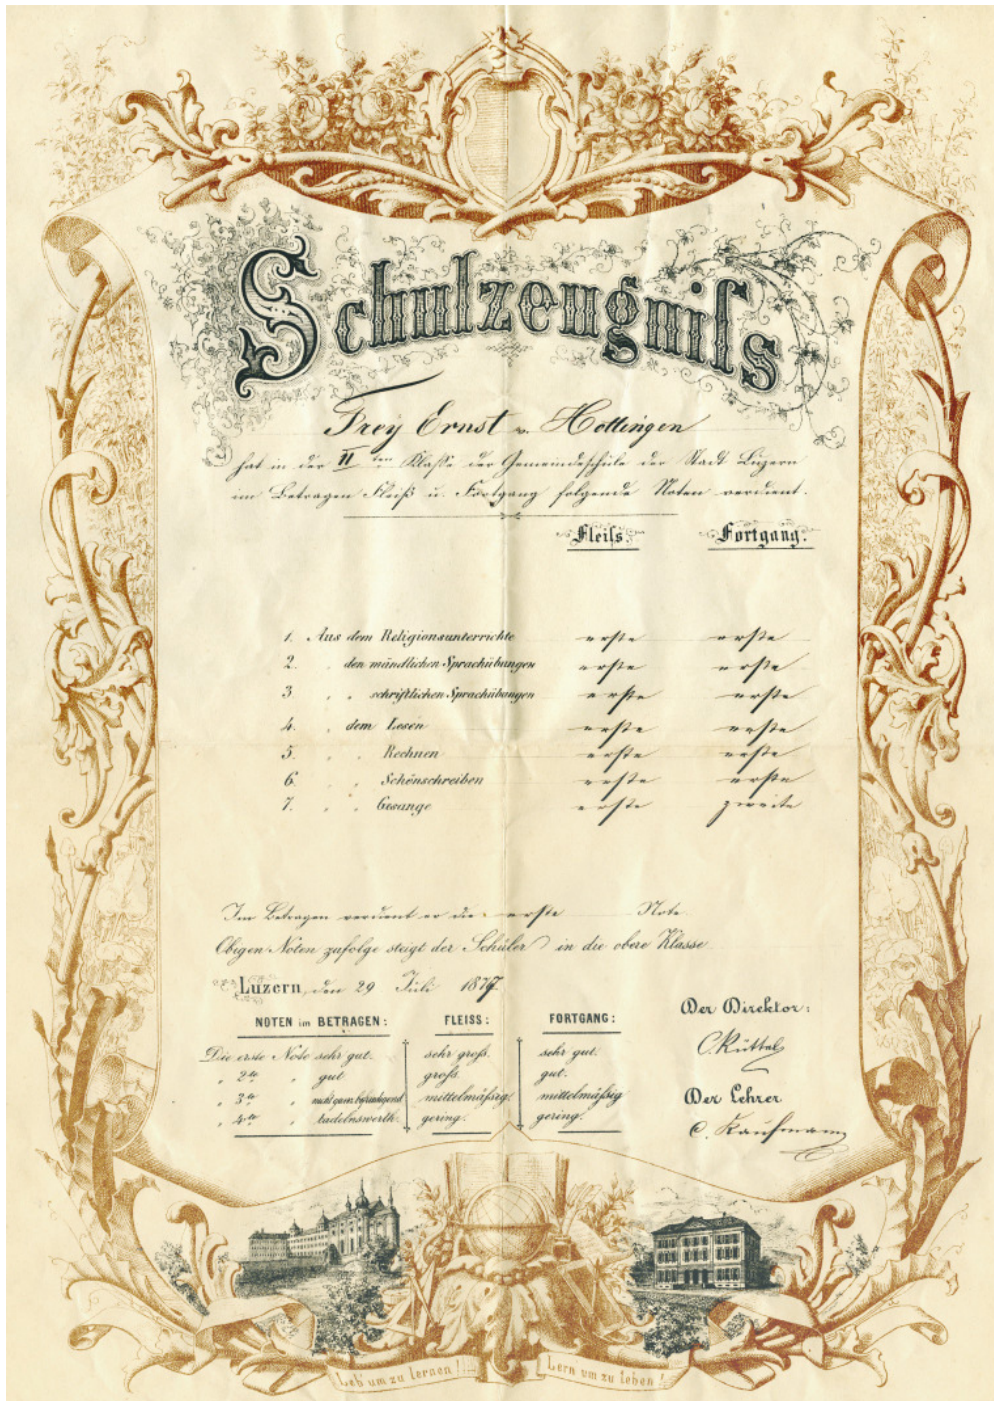 Schulzeugniſs
Frey Ernst v. Hottingen
hat in der II ten Klaſse der Gemeindeschule der Stadt Luzern
im Betragen Fleiß u. Fortgang folgende Noten verdient.
Fleiſs. Fortgang.
1. Aus dem Religionsunterrichte erste erste
2. " den mündlichen Sprachübungen erste erste
3 " " schriftlichen Sprachübungen erste erste
4. " dem Lesen erste erste
5. " " Rechnen erste erste
6. " " Schönschreiben erste erste
7. " " Gesange erste zweite
Im Betragen verdient er die erste Note
Obigen Noten zufolge steigt der Schüler in die obere Klasse
Luzern, den 29 Juli 1877
Der Direktor:
NOTEN im BETRAGEN: FLEISS: FORTGANG:
C. Küttel
Die erste Note sehr gut. sehr groſs. sehr gut.
" 2te " gut groſs. gut.
" 3te " nicht ganz befriedigend mittelmäſsig. mittelmäſsig
Der Lehrer
" 4te " tadelnswerth. gering. gering.
C. Kaufmann
Leb' um zu lernen! Lern um zu leben!